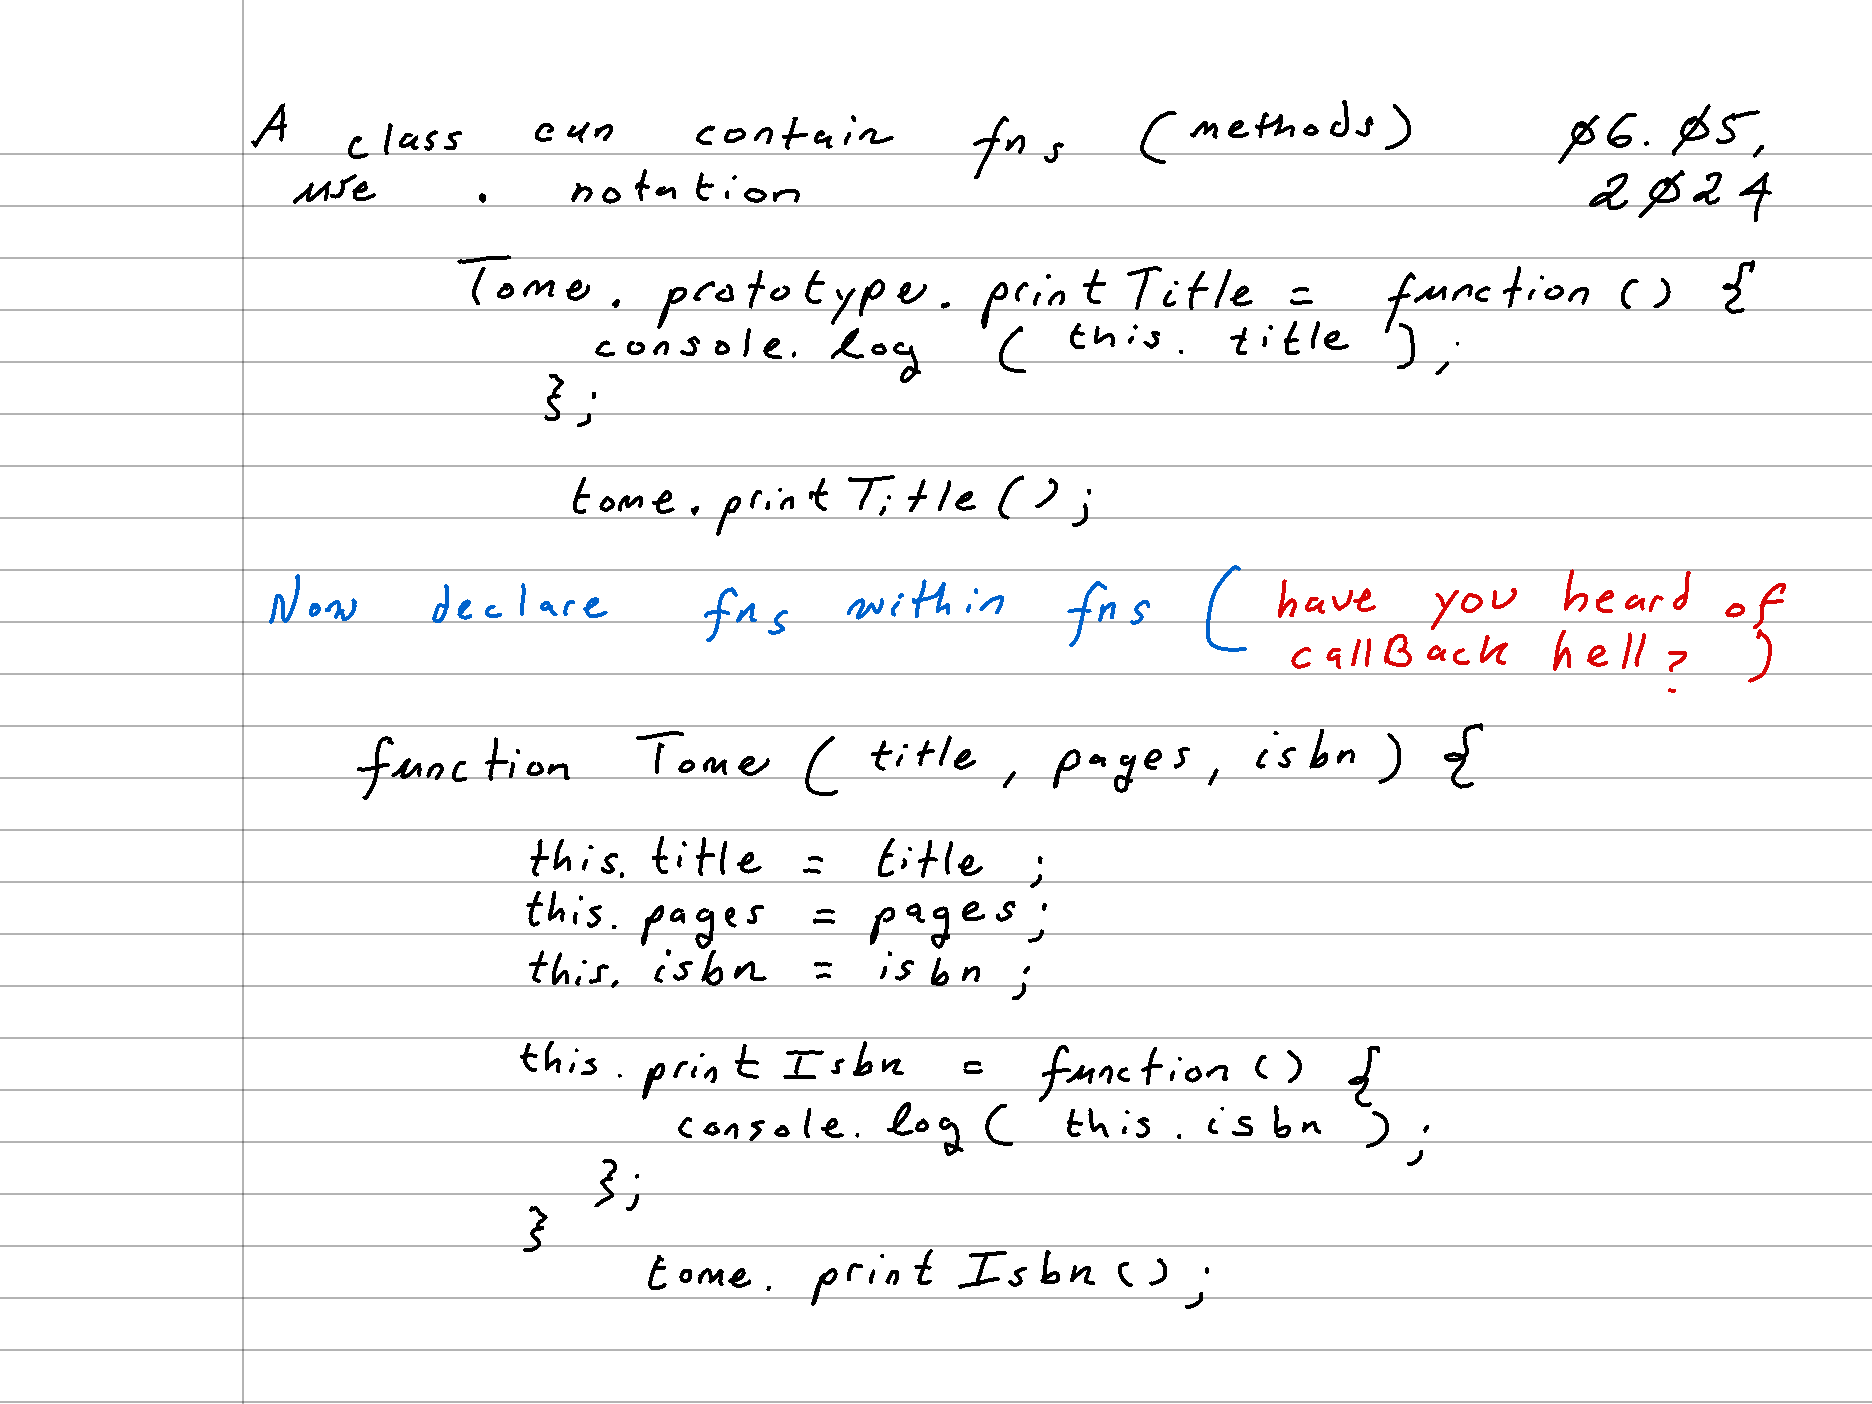 A class can contain fns (methods) Ø6.Ø5,
use . notation 2Ø24
Tome.prototype.printTitle = function() {
console.log ( this.title );
};
tome.printTitle();
Now declare fns within fns (have you heard of
callBack hell?)
function Tome ( title, pages, isbn) {
this.title = title ;
this.pages = pages;
this.isbn = isbn ;
this.printIsbn = function() {
console.log( this.isbn );
};
}
tome.printIsbn();